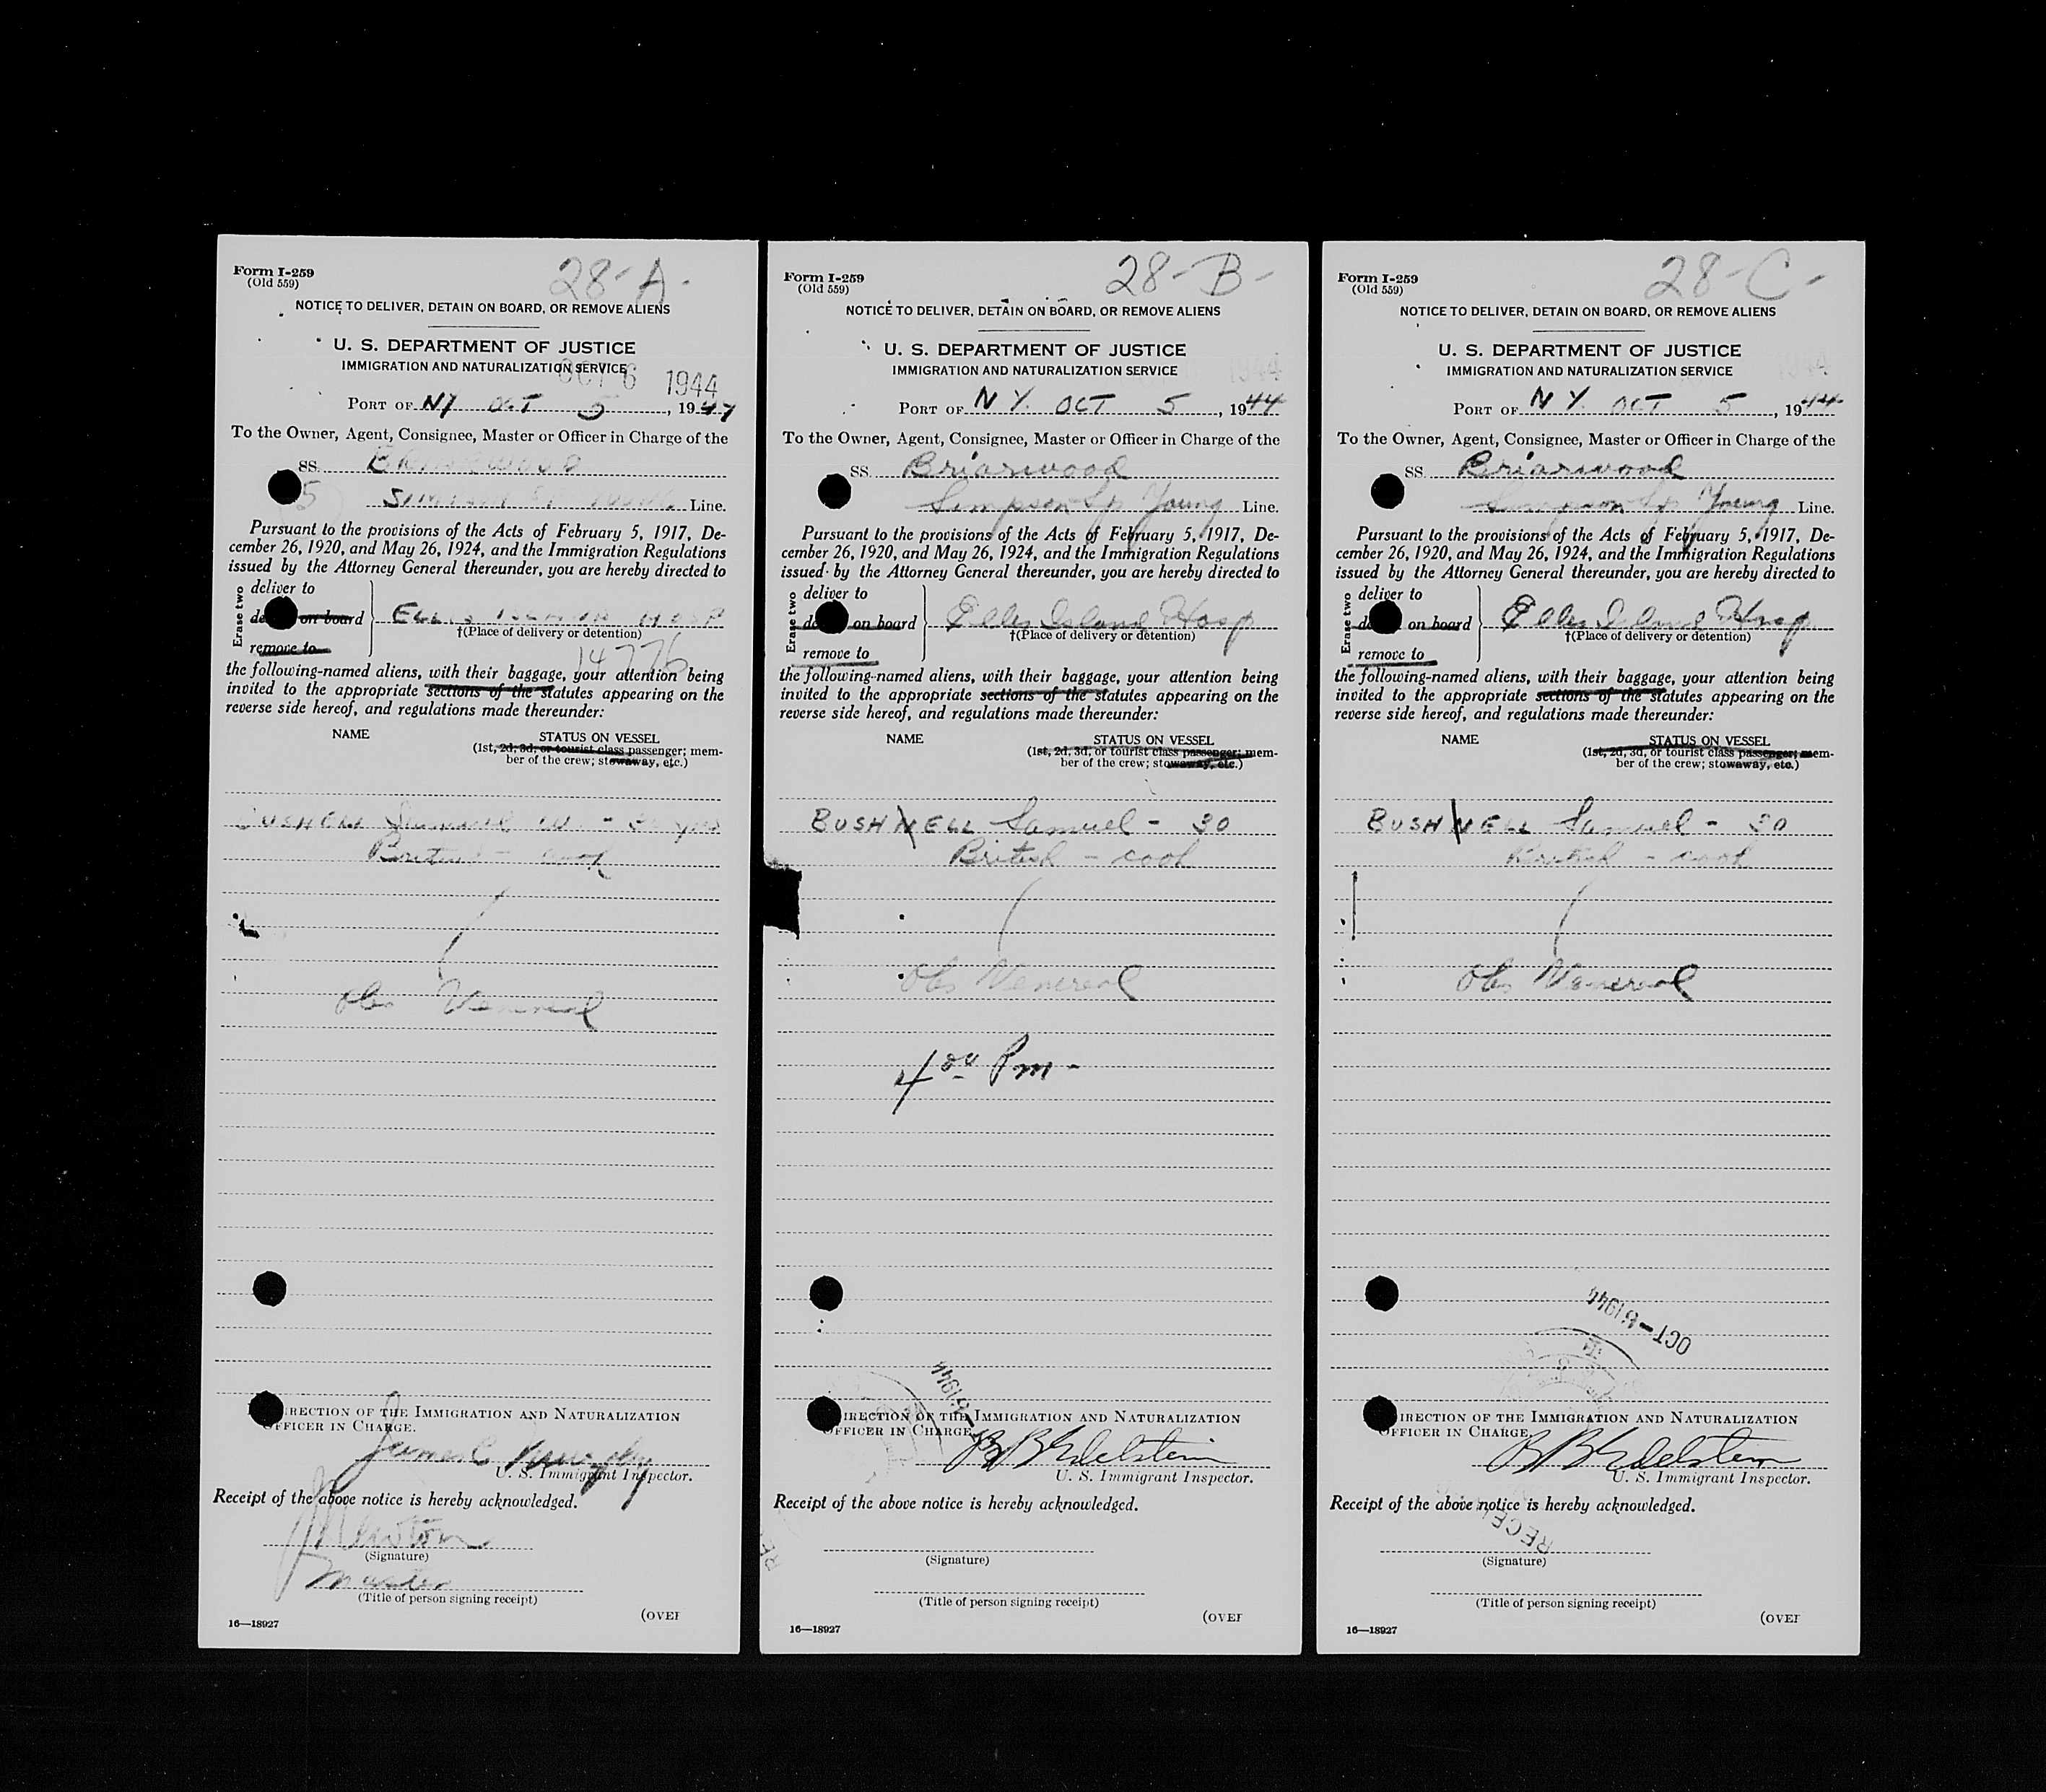 28-A-
Form I-259
(Old 559)
NOTICE TO DELIVER, DETAIN ON BOARD, OR REMOVE ALIENS
U. S. DEPARTMENT OF JUSTICE
IMMIGRATION AND NATURALIZATION SERVICE
OCT 6 1944
PORT OF NY OCT 5, 1944
To the Owner, Agent, Consignee, Master or Officer in Charge of the
SS.
Line.
Pursuant to the provisions of the Acts of February 5, 1917, De-
cember 26, 1920, and May 26, 1924, and the Immigration Regulations
issued by the Attorney General thereunder, you are hereby directed to
Erase two
deliver to
on board
ELLIS ISLAND HOSP
†(Place of delivery or detention)
remove to
14776
the following-named aliens, with their baggage, your attention being
invited to the appropriate sections of the statutes appearing on the
reverse side hereof, and regulations made thereunder:
NAME
STATUS ON VESSEL
(1st, 2d, 3d, or tourist class passenger; mem-
ber of the crew; stowaway, etc.)
BUSHELL Samuel W. - 30 yrs
British - cook
Obs Venereal
DIRECTION OF THE IMMIGRATION AND NATURALIZATION
OFFICER IN CHARGE.
James C Murphy
U. S. Immigrant Inspector.
Receipt of the above notice is hereby acknowledged.
(Signature)
Master
(Title of person signing receipt)
16—18927
(OVER
28-B-
Form I-259
(Old 559)
NOTICE TO DELIVER, DETAIN ON BOARD, OR REMOVE ALIENS
U. S. DEPARTMENT OF JUSTICE
IMMIGRATION AND NATURALIZATION SERVICE
1944
PORT OF N Y. OCT 5, 1944
To the Owner, Agent, Consignee, Master or Officer in Charge of the
SS. Briarwood
Simpson Sp Young Line.
Pursuant to the provisions of the Acts of February 5, 1917, De-
cember 26, 1920, and May 26, 1924, and the Immigration Regulations
issued by the Attorney General thereunder, you are hereby directed to
Erase two
deliver to
on board
Ellis Island Hosp
†(Place of delivery or detention)
remove to
the following-named aliens, with their baggage, your attention being
invited to the appropriate sections of the statutes appearing on the
reverse side hereof, and regulations made thereunder:
NAME
STATUS ON VESSEL
(1st, 2d, 3d, or tourist class passenger; mem-
ber of the crew; stowaway, etc.)
BUSHNELL Samuel - 30
British - cook
Obs Venereal
4 Pm -
1944
DIRECTION OF THE IMMIGRATION AND NATURALIZATION
OFFICER IN CHARGE
B B Edelstein
U. S. Immigrant Inspector.
Receipt of the above notice is hereby acknowledged.
(Signature)
(Title of person signing receipt)
16—18927
(OVER
28-C-
Form I-259
(Old 559)
NOTICE TO DELIVER, DETAIN ON BOARD, OR REMOVE ALIENS
U. S. DEPARTMENT OF JUSTICE
IMMIGRATION AND NATURALIZATION SERVICE
1944
PORT OF N Y. OCT 5, 1944
To the Owner, Agent, Consignee, Master or Officer in Charge of the
SS. Briarwood
Simpson Sp Young Line.
Pursuant to the provisions of the Acts of February 5, 1917, De-
cember 26, 1920, and May 26, 1924, and the Immigration Regulations
issued by the Attorney General thereunder, you are hereby directed to
Erase two
deliver to
on board
Ellis Island Hosp
†(Place of delivery or detention)
remove to
the following-named aliens, with their baggage, your attention being
invited to the appropriate sections of the statutes appearing on the
reverse side hereof, and regulations made thereunder:
NAME
STATUS ON VESSEL
(1st, 2d, 3d, or tourist class passenger; mem-
ber of the crew; stowaway, etc.)
BUSHNELL Samuel - 30
British - cook
Obs Venereal
OCT 1944
DIRECTION OF THE IMMIGRATION AND NATURALIZATION
OFFICER IN CHARGE
B B Edelstein
U. S. Immigrant Inspector.
Receipt of the above notice is hereby acknowledged.
(Signature)
(Title of person signing receipt)
16—18927
(OVER